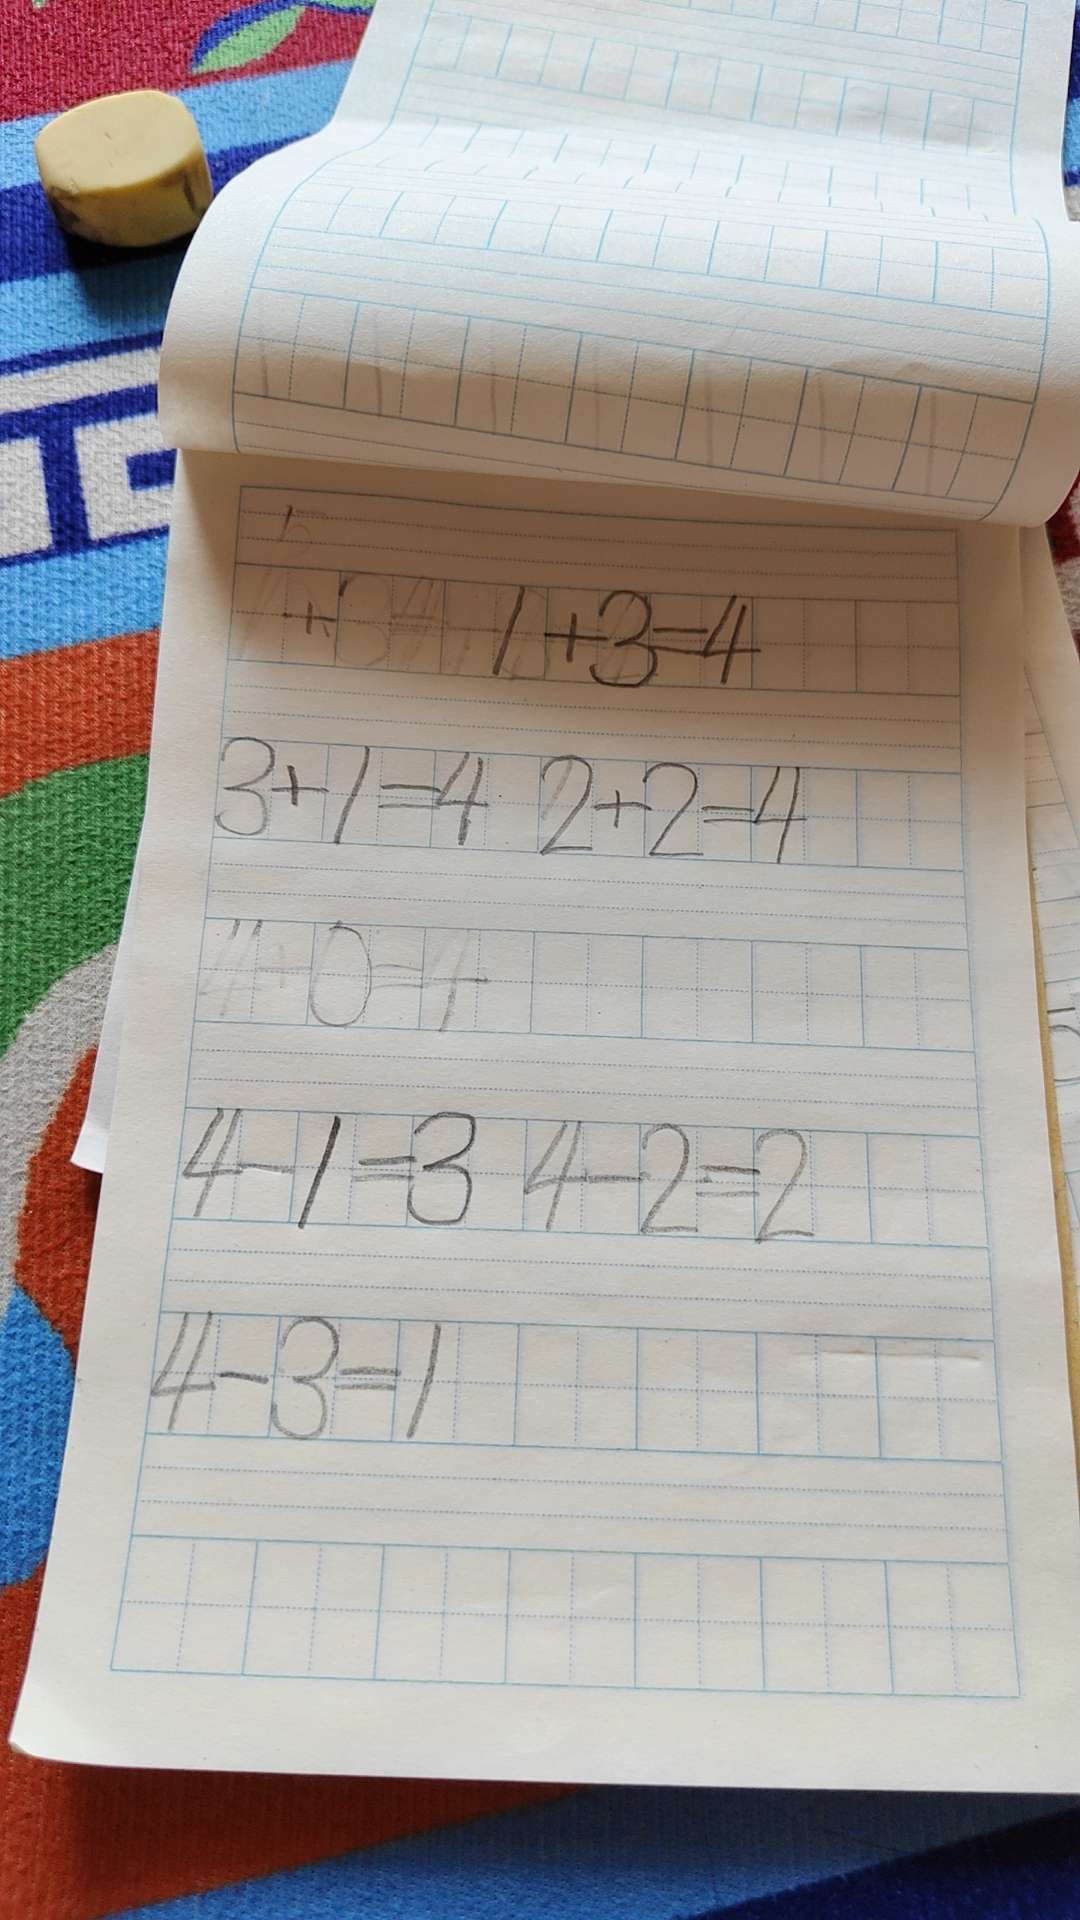 1+3=4
3+1=4 2+2=4
4+0=4
4-1=3 4-2=2
4-3=1